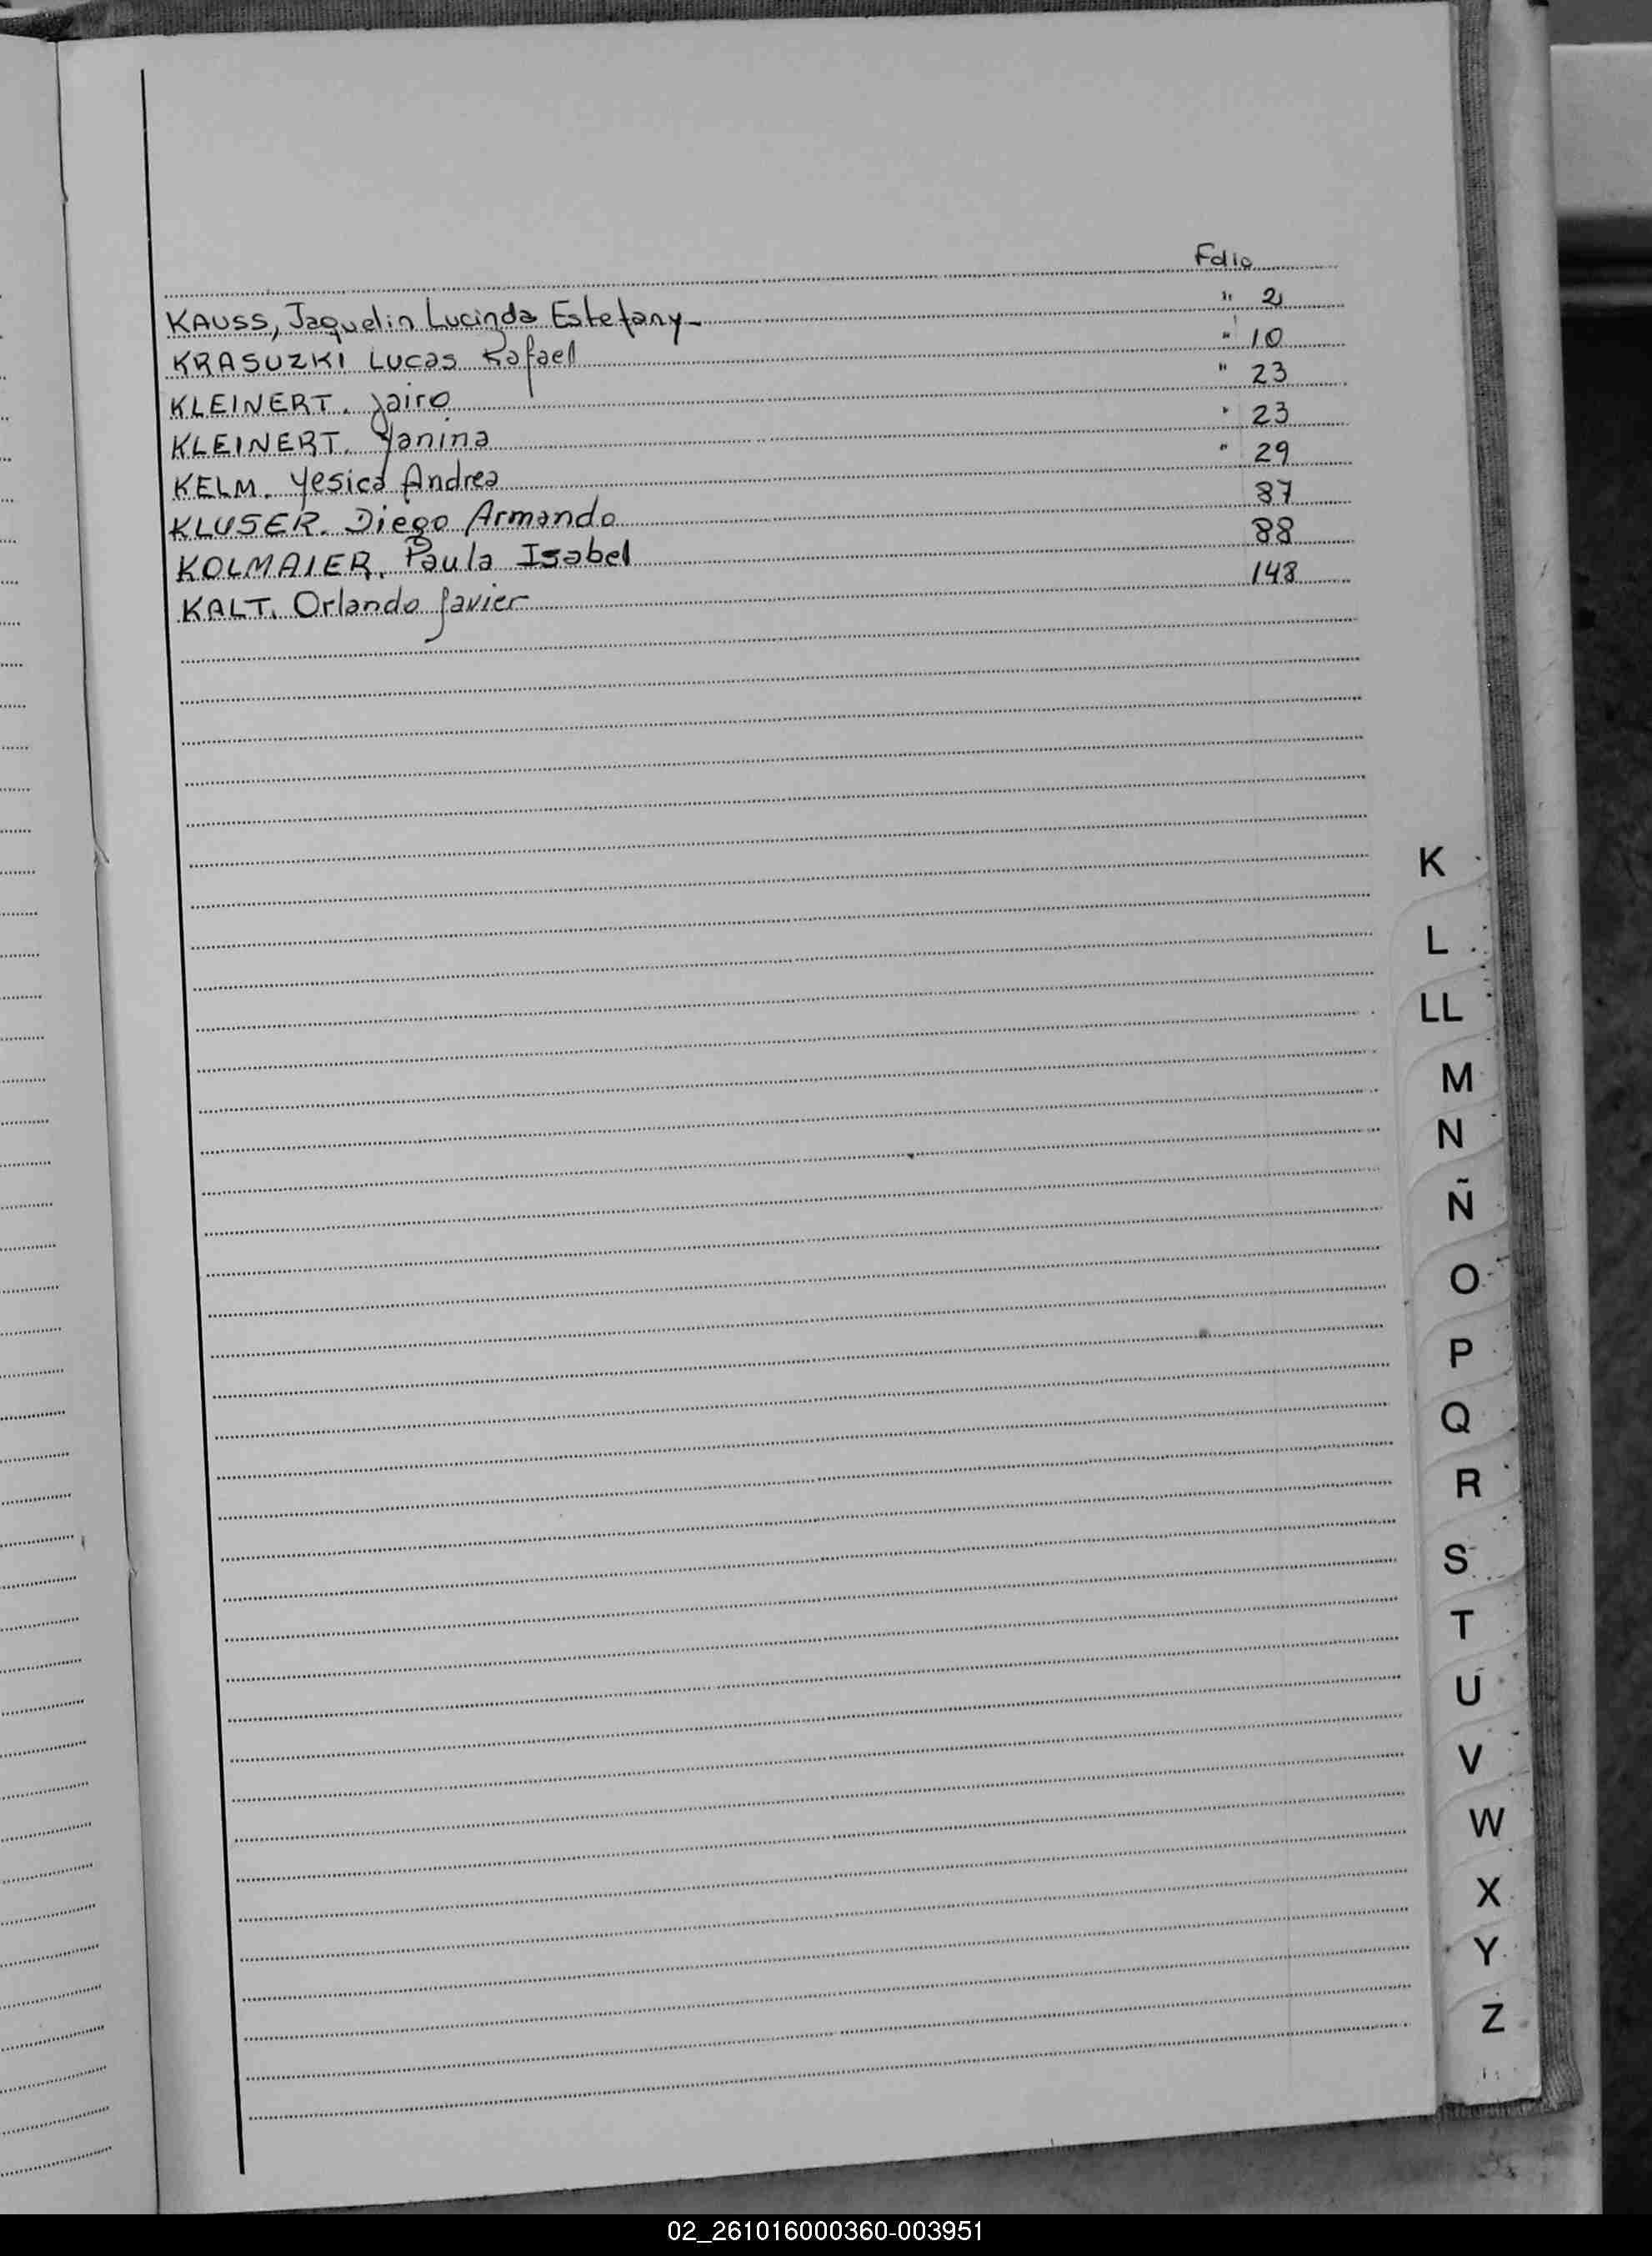 Folio
KAUSS, Jaquelin Lucinda Estefany - " 2
KRASUZKI Lucas Rafael " 10
KLEINERT. Jairo " 23
KLEINERT. Yanina " 23
KELM. Yesica Andrea " 29
KLUSER. Diego Armando 87
KOLMAIER. Paula Isabel 88
KALT. Orlando Javier 148
K
L
LL
M
N
Ñ
O
P
Q
R
S
T
U
V
W
X
Y
Z
02_261016000360-003951